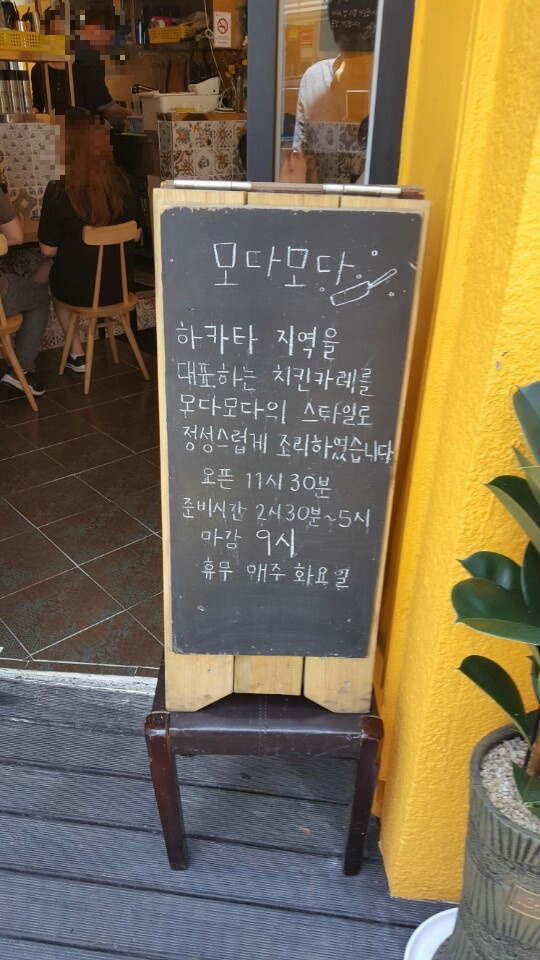 모다모다
하카타 지역을
대표하는 치킨카레를
모다모다의 스타일로
정성스럽게 조리하였습니다
오픈 11시 30분
준비시간 2시 30분~5시
마감 9시
휴무 매주 화요일